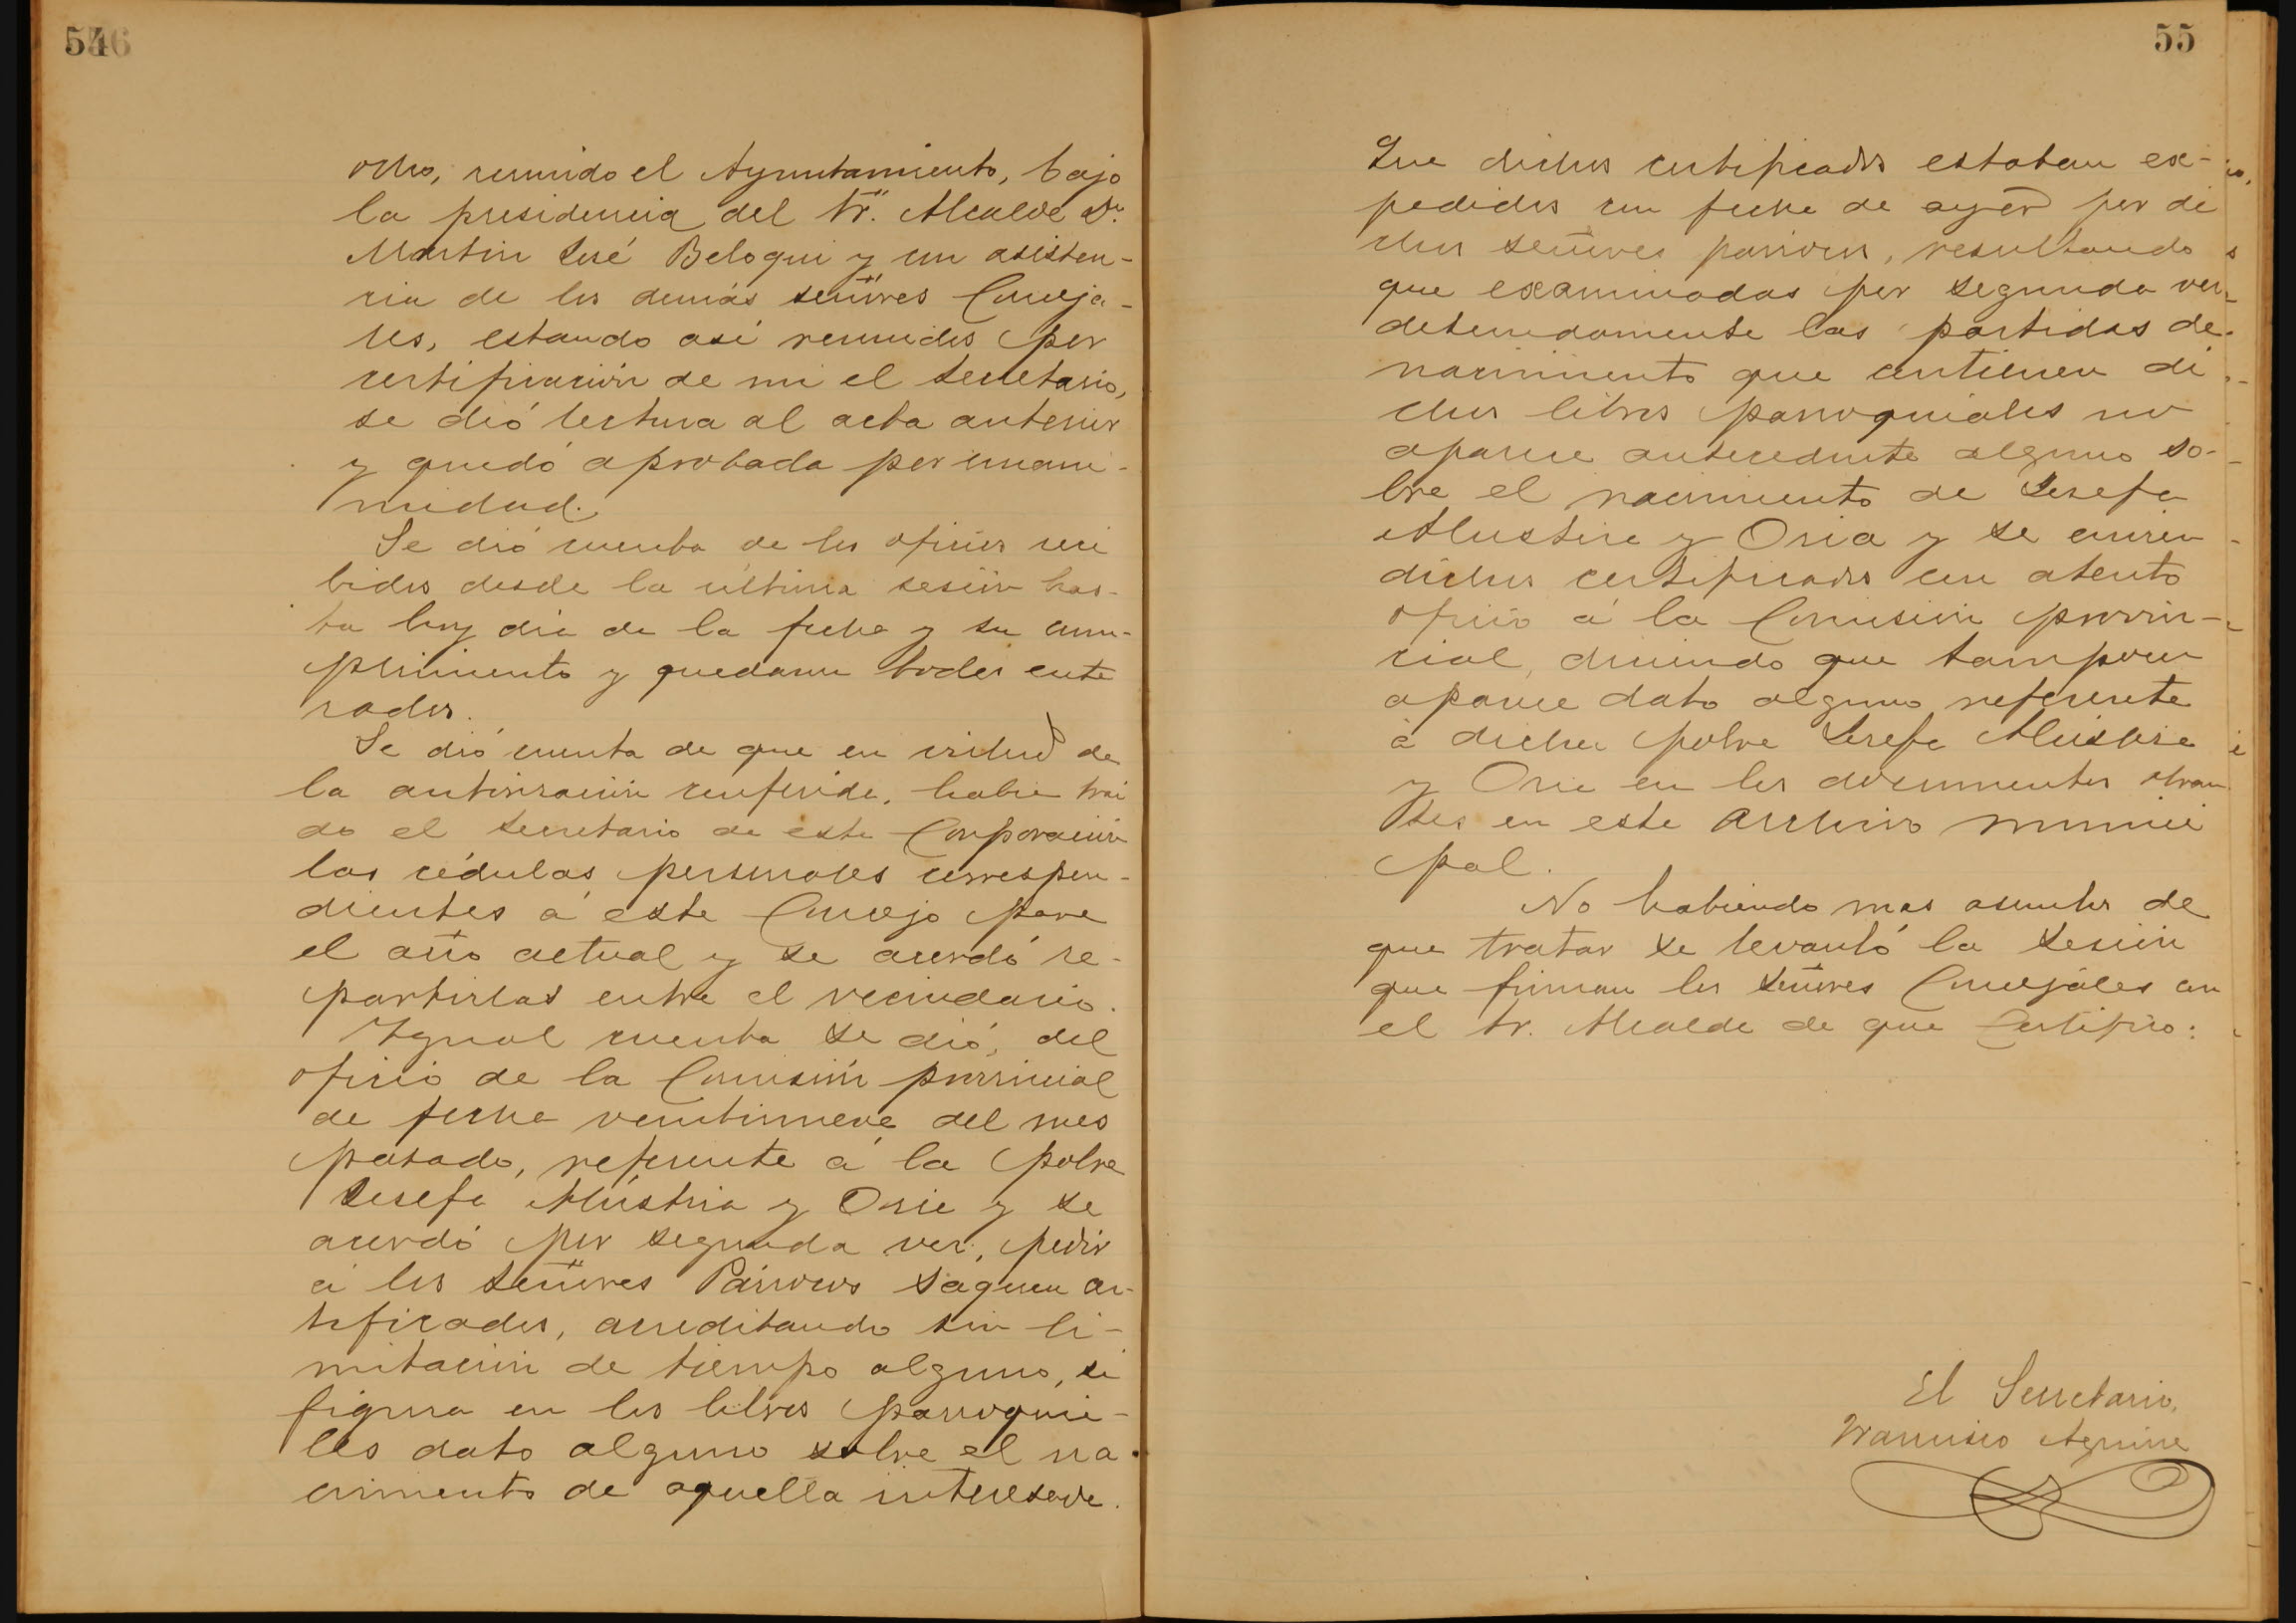 546
ocho, reunido el Ayuntamiento, bajo
la presidencia del Sr. Alcalde Dn.
Martin José Beloqui y con asisten-
cia de los demás señores Conceja-
les, estando así reunidos por
certificación de mi el Secretario,
se dió lectura al acta anterior
y quedó aprobada por unani-
midad.
Se dió cuenta de los oficios reci
bidos desde la última sesión has-
ta hoy dia de la fecha y su cum-
plimiento y quedaron todos ente
rados.
Se dió cuenta de que en virtud de
la autorización conferida, habia trai
do el Secretario de esta Corporación
las cédulas personales correspon-
dientes á este Concejo para
el año actual y se acordó re-
partirlas entre el vecindario.
Igual cuenta se dió, del
oficio de la Comisión provincial
de fecha veintinueve del mes
pasado, referente á la pobre
Josefa Alústiza y Oria y se
acordó por segunda vez, pedir
á los señores Párrocos saquen cer-
tificados, acreditando sin li-
mitación de tiempo alguno, si
figura en los libros parroquia-
les dato alguno sobre el na-
cimiento de aquella interesada.
55
Que dichos certificados estaban ex-
pedidos con fecha de ayer por di
chos señores párrocos, resultando
que examinadas por segunda vez
detenidamente las partidas de
nacimiento que contienen di
chos libros parroquiales no
aparece antecedente alguno so-
bre el nacimiento de Josefa
Alustiza y Oria y se envien
dichos certificados con atento
oficio á la Comisión provin-
cial, diciendo que tampoco
aparece dato alguno referente
á dicha pobre Josefa Alústiza
y Oria en los documentos obran
tes en este Archivo munici
pal.
No habiendo mas asuntos de
que tratar se levantó la sesión
que firman los señores Concejáles con
el Sr. Alcalde de que Certifico:
El Secretario,
Francisco Aguirre